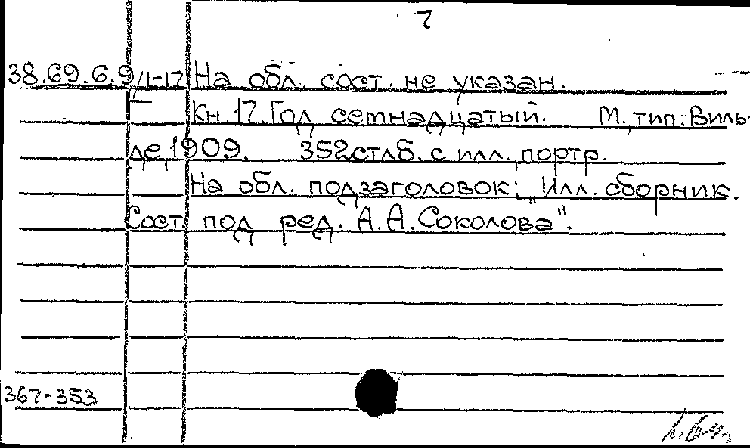 7
38.69.6.9/1-17 На обл. сост. не указан.
Кн 17. Год семнадцатый. М., тип. Виль-
де, 1909. 352 стлб. с илл., портр.
На обл. подзаголовок: „Илл. сборник.
Сост. под ред. А.А. Соколова".
367-353